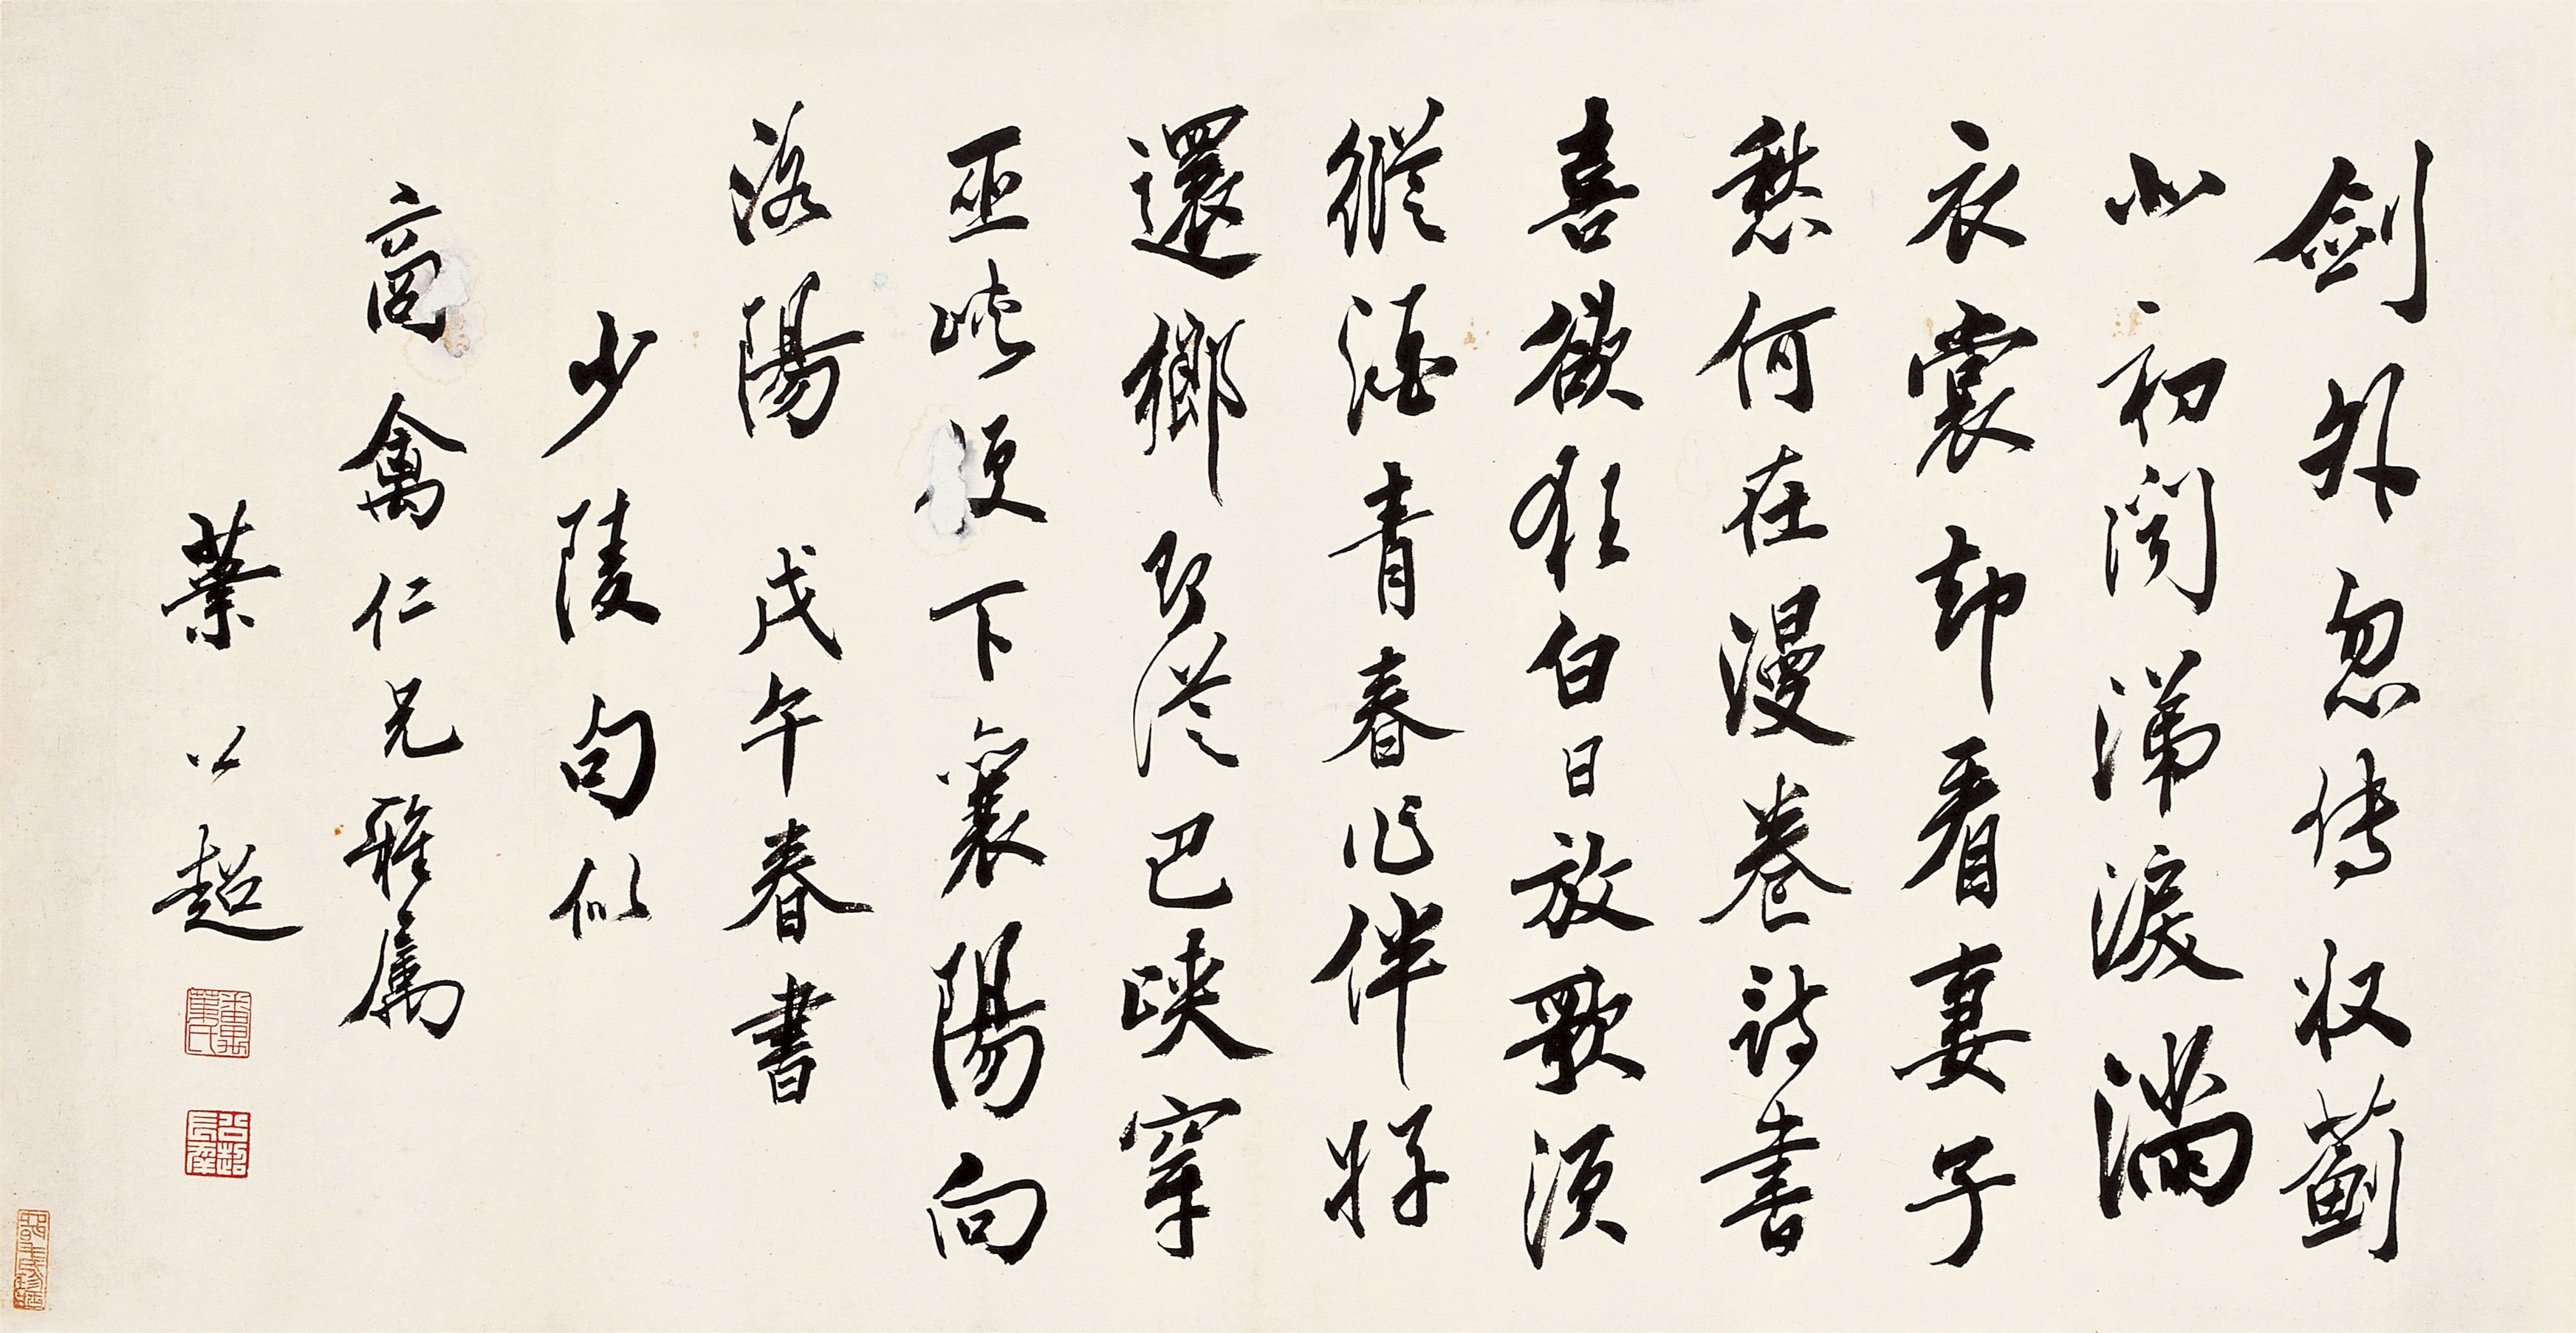 劍外忽傳收薊
北初聞涕淚滿
衣裳却看妻子
愁何在漫卷詩書
喜欲狂白日放歌須
縱酒青春作伴好
還鄉即從巴峽穿
巫峽便下襄陽向
洛陽 戊午春書
少陵句似
商禽仁兄雅屬
葉公超
番禺葉氏